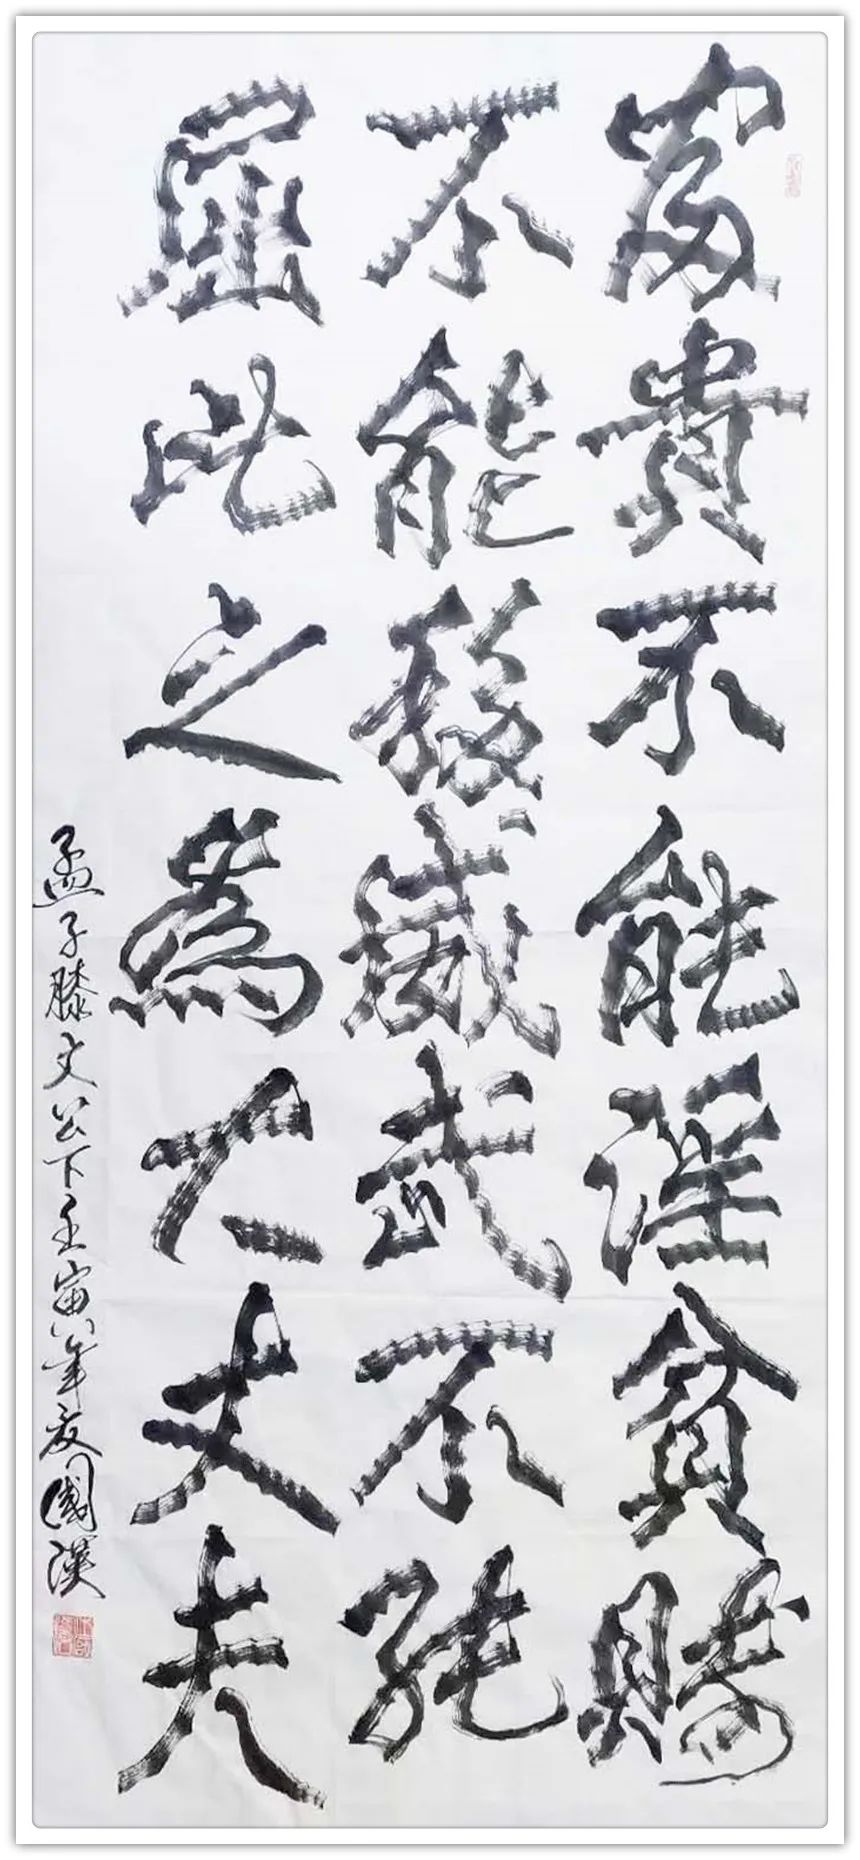 富貴不能淫貧賤
不能移威武不能
屈此之為大丈夫
孟子滕文公下壬寅年夏國漢